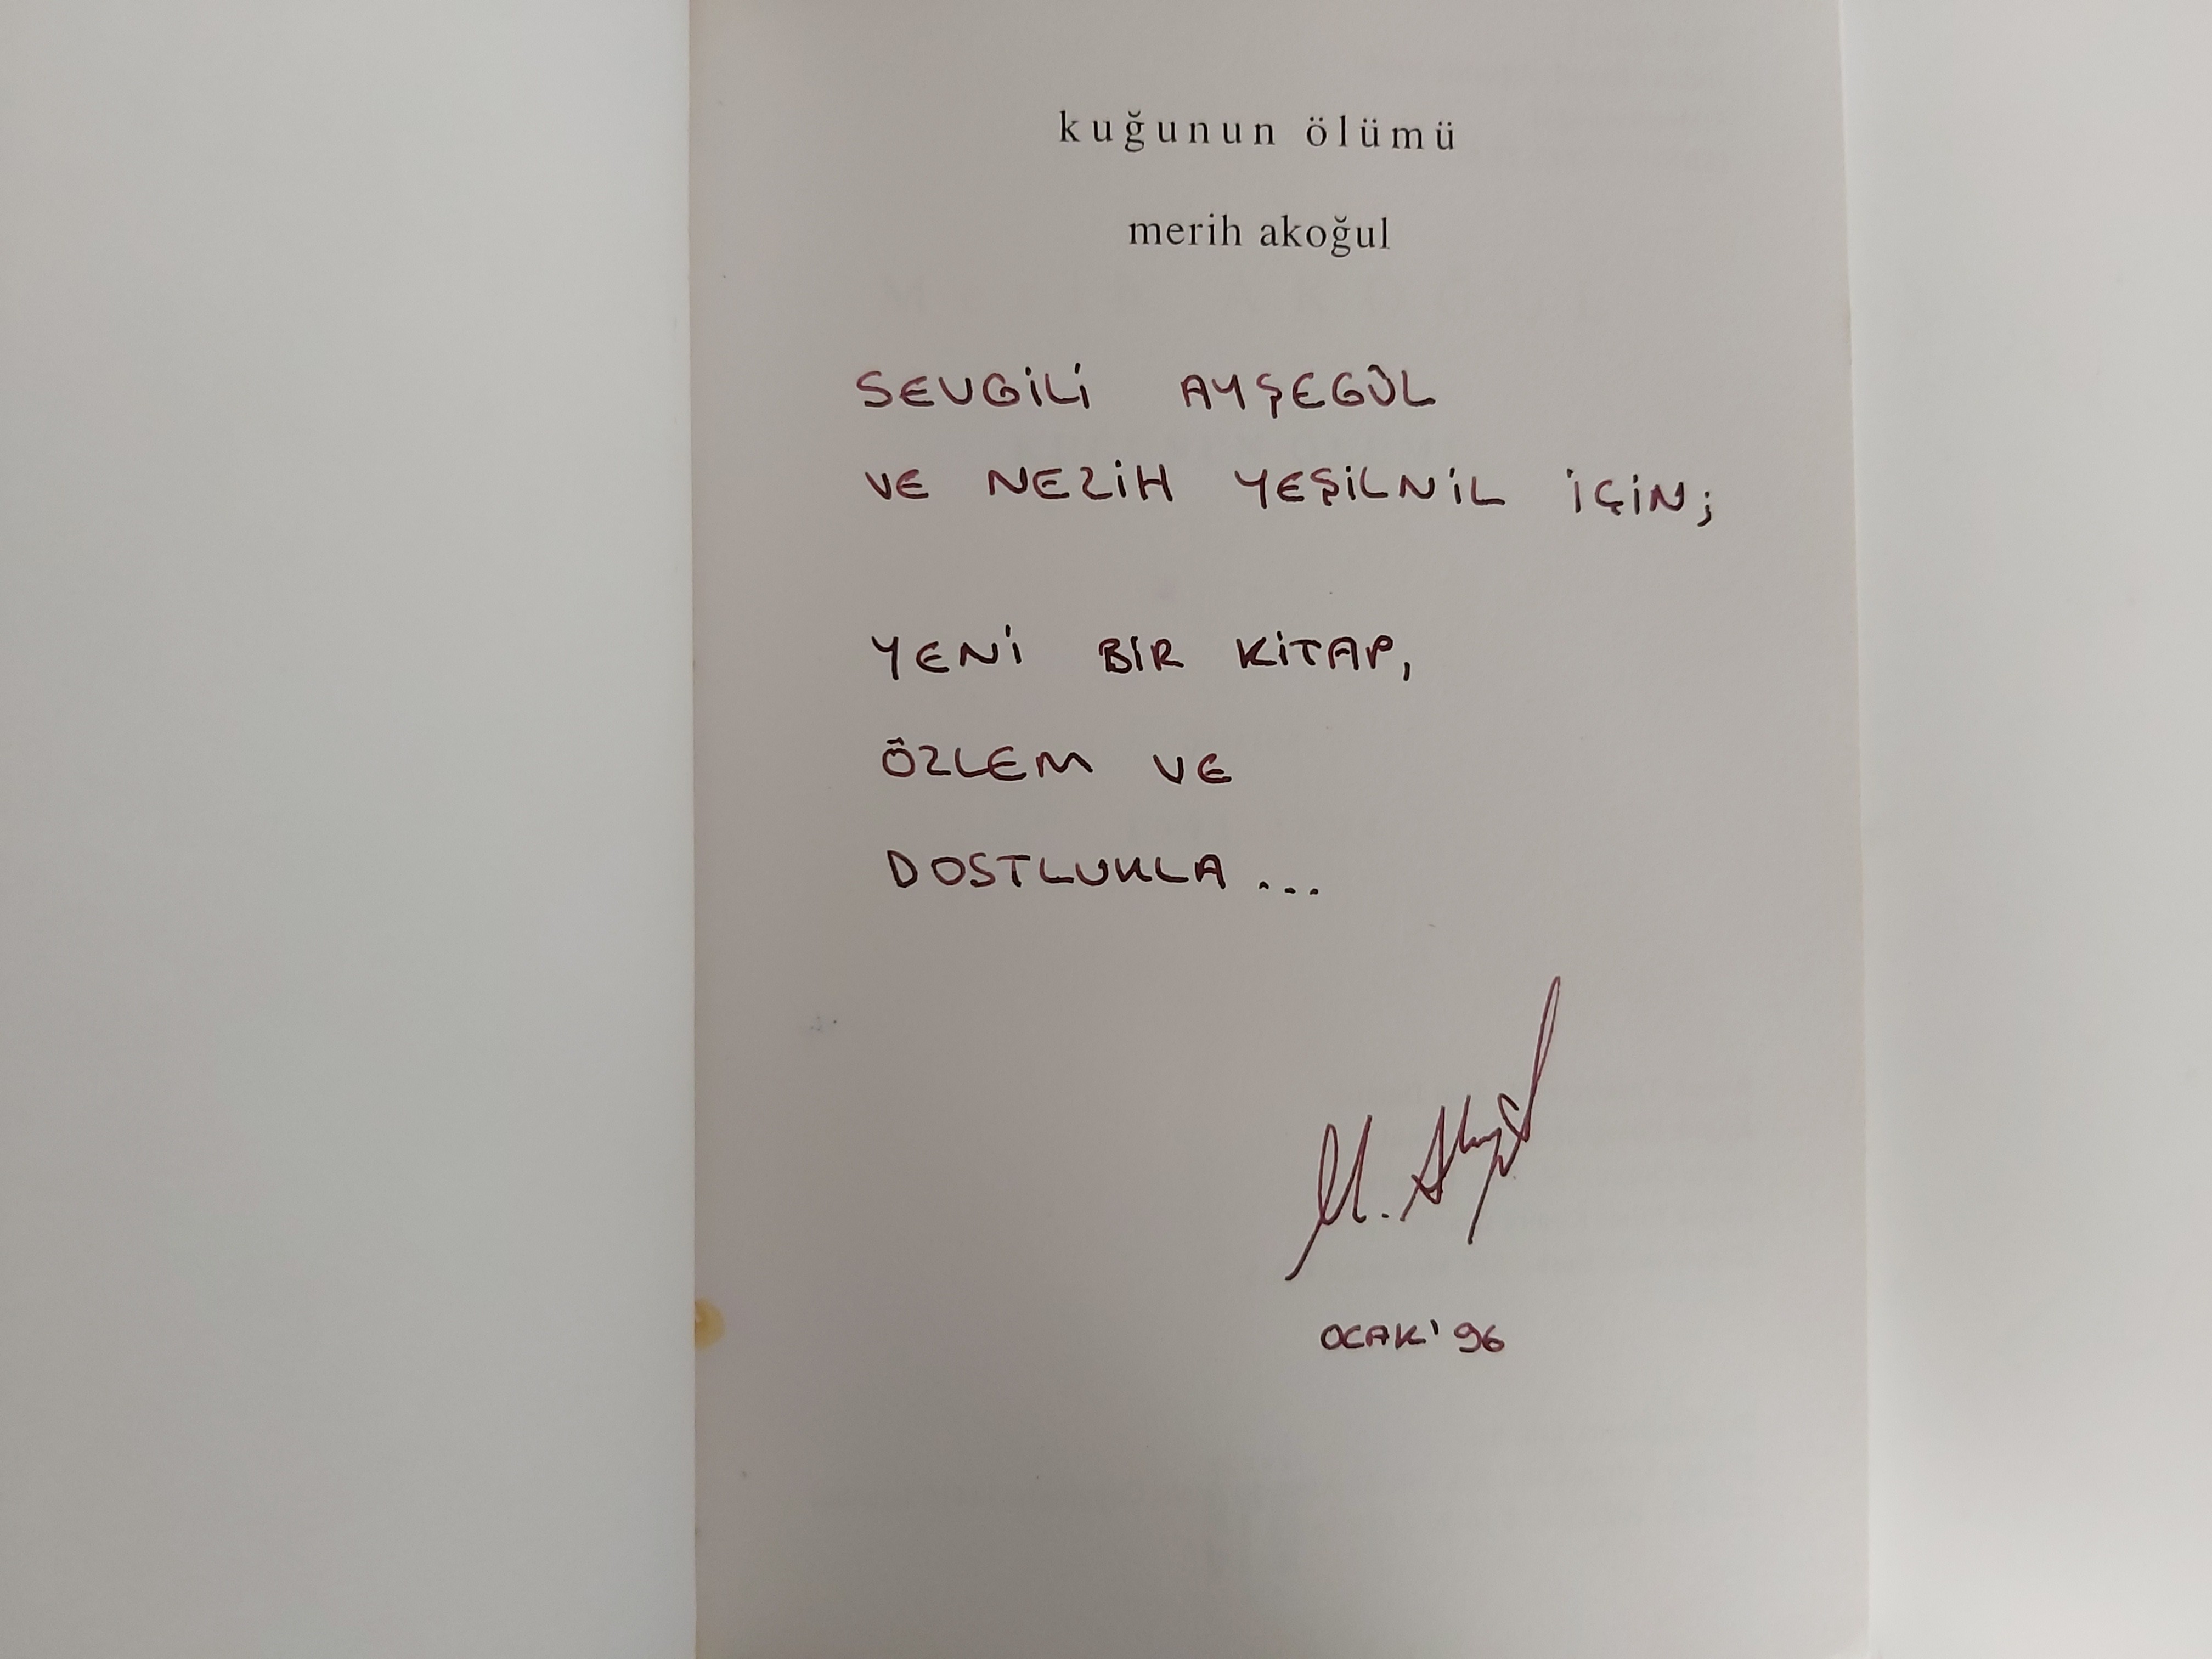 kuğunun ölümü
merih akoğul
SEVGİLİ AYŞEGÜL
VE NEZİH YEŞİLNİL İÇİN;
YENİ BİR KİTAP,
ÖZLEM VE
DOSTLUKLA...
M. Akoğul
OCAK'96